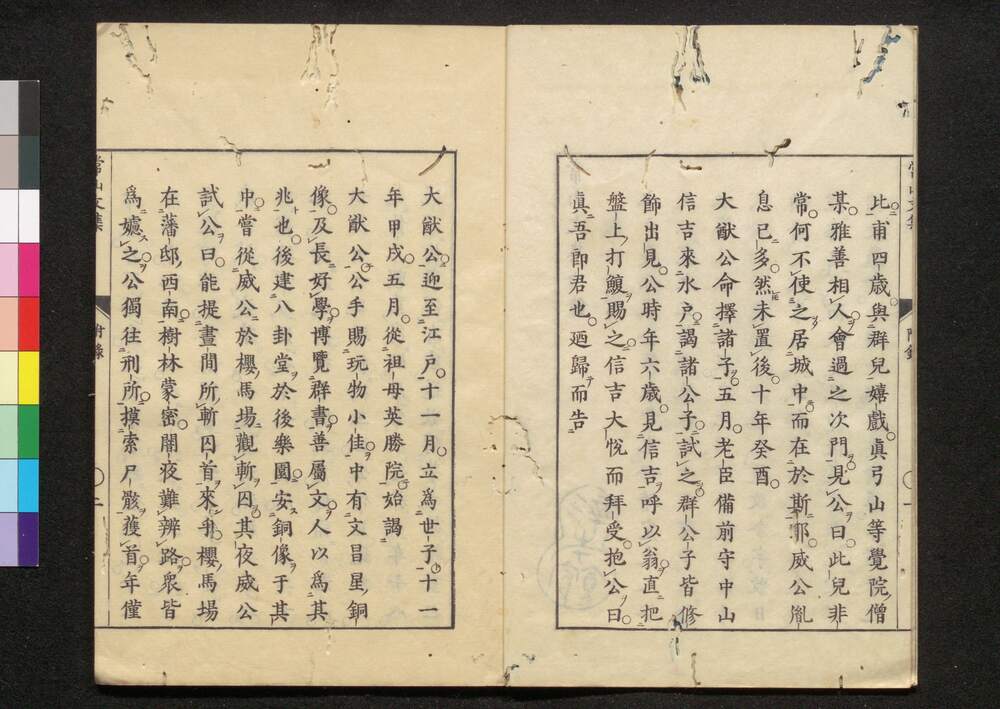 此甫四歳與群兒嬉戲眞弓山等覺院僧
某雅善相人會過之次門見公曰此兒非
常何不使之居城中而在於斯耶威公胤
息已多然未置後十年癸酉
大猷公命擇諸子五月老臣備前守中山
信吉來水戸謁諸公子試之群公子皆修
飾出見公時年六歳見信吉呼以翁直把
盤上打鰒賜之信吉大悅而拜受抱公曰
眞吾郎君也廼歸而告
大猷公迎至江戸十一月立爲世子十一
年甲戌五月從祖母英勝院始謁
大猷公公手賜玩物小佳中有文昌星銅
像及長好學博覽群書善屬文人以爲其
兆也後建八卦堂於後樂園安銅像于其
中嘗從威公於櫻馬場觀斬囚其夜威公
試公曰能提晝間所斬囚首來乎櫻馬場
在藩邸西南樹林蒙密闇夜難辨路衆皆
爲懼之公獨往刑所摸索尸骸獲首年僅
常山文集
附錄
二